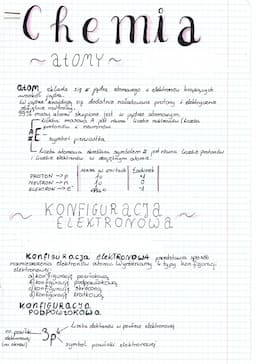 Chemia
~ATOMY~
atom składa się z jądra atomowego i elektronów krążących
wokół jądra.
W jądrze znajdują się dodatnio naładowane protony i elektrycznie
obojętne neutrony.
99% masy atomu skupione jest w jądrze atomowym.
liczba masowa A jest równa liczbie nukleonów (liczba
protonów i neutronów)
A
E
symbol pierwiastka
Z
liczba atomowa określana symbolem Z jest równa liczbie protonów
masa w unitach ładunek
PROTON → p 1u +1
NEUTRON → n 1u 0
ELEKTRON → e⁻ -1
~ KONFIGURACJA ~
ELEKTRONOWA
konfiguracja elektronowa przedstawia sposób
rozmieszczenia elektronów atomu. Wyróżniamy 4 typy konfiguracji
elektronowej:
a) konfigurację powłokową
b) konfigurację podpowłokową
c) konfigurację skróconą
d) konfigurację klatkową
KONFIGURACJA
PODPOWŁOKOWA
liczba elektronów w powłoce elektronowej
nr powłoki
elektronowej
(nr okresu)
3p⁴
symbol powłoki elektronowej